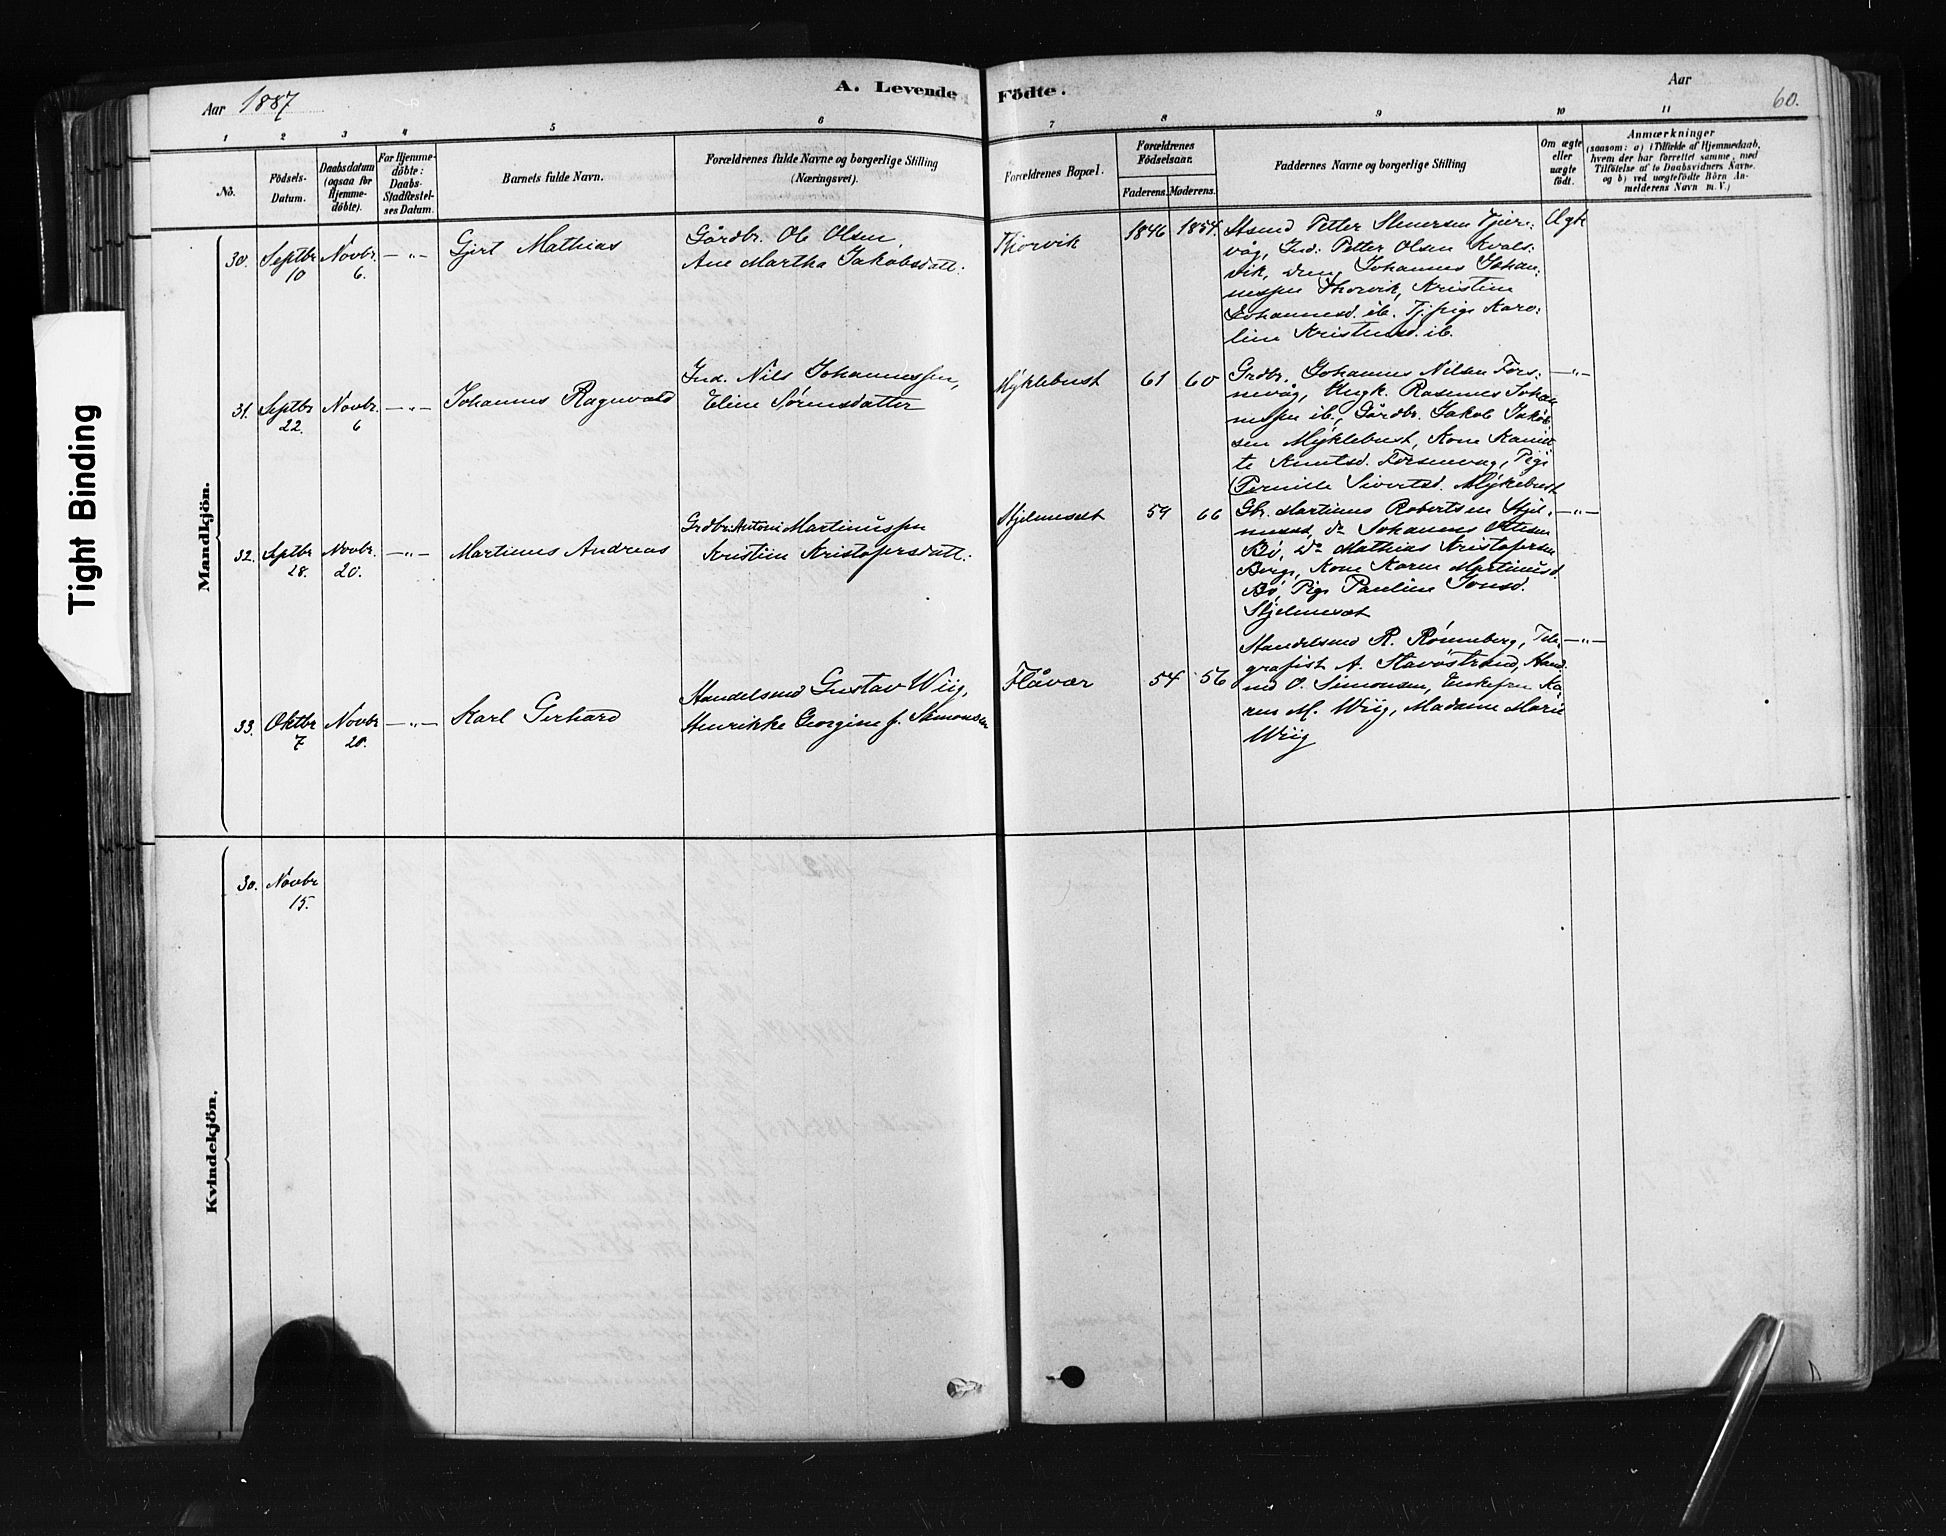 Tight Binding
Aar 1887
A. Levende Födte.
Aar
60.
1 2 3 4 5 6 7 8 9 10 11
No.
Födsels-
Datum.
Daabsdatum
(ogsaa for
Hjemme-
döbte).
For Hjemme-
döbte:
Daabs-
Stadfæstel-
ses Datum.
Barnets fulde Navn.
Forældrenes fulde Navne og borgerlige Stilling
(Næringsvei).
Forældrenes Bopæl.
Forældrenes
Födselsaar.
Faderens. Moderens.
Faddernes Navne og borgerlige Stilling
Om ægte
eller
uægte
født.
Anmærkninger
(saasom: a) i Tilfælde af Hjemmedaab,
hvem der har forrettet samme, med
Tilföielse af to Daabsvidners Navne.
og b) ved uægtefödte Börn An-
melderens Navn m. V.)
Mandkjön.
30. Septbr 10 Novbr. 6. —"—
Gjert Mathias
Gårdbr. Ole Olsen,
Ane Martha Jakobsdatt.
Thorvik
1846 1854.
Petter Stenersen Tjør-
våg, Ind. Petter Olsen Kvals-
vik, Johannes Johan-
nessen Thorvik, Kristine
Johannesd. ib. Tj.pige Karo-
line Kristensd. ib.
Ægte
31. Septbr 22. Novbr. 6 —"—
Johannes Ragnvald
Ind. Nils Johannessen,
Eline Sørensdatter
Myklebust
61 60
Grdbr. Johannes Nilsen Fors-
nevåg, Ungk. Rasmus Johan
nessen ib., Gårdbr. Jakob Jakob
sen Myklebust, Kone
Knutsd. Forsnevåg, Pige
Pernille Sivertsd. Myklebust
—"—
32. Septbr 28. Novbr. 20. —"—
Martinus Andreas
Grdbr. Antoni Martinussen
Kristine Kristofersdatt.
Skjelmeset
59 66
Gbr. Martinus Robertsen Skjel-
meset, do Johannes Ottesen
Bø, Do Mathias Kristofersen
Berge, Kone Karen Martinusd.
Bø, Pige Pauline Jonsd.
Skjelmeset
—"—
33. Oktbr 7 Novbr 20. —"—
Karl Gerhard
Handelsmd Gustav Wiig,
Henrikke Georgine f. Simonsen
Flåvær
54 56
Handelsmd R. Rønneberg, Tele-
grafist A. Havøstrand, Hand.
md O. Simonsen, Enkefru Ka-
ren M. Wiig, Madame Marie
Wiig
—"—
Kvindekjön.
30. Novbr
15.